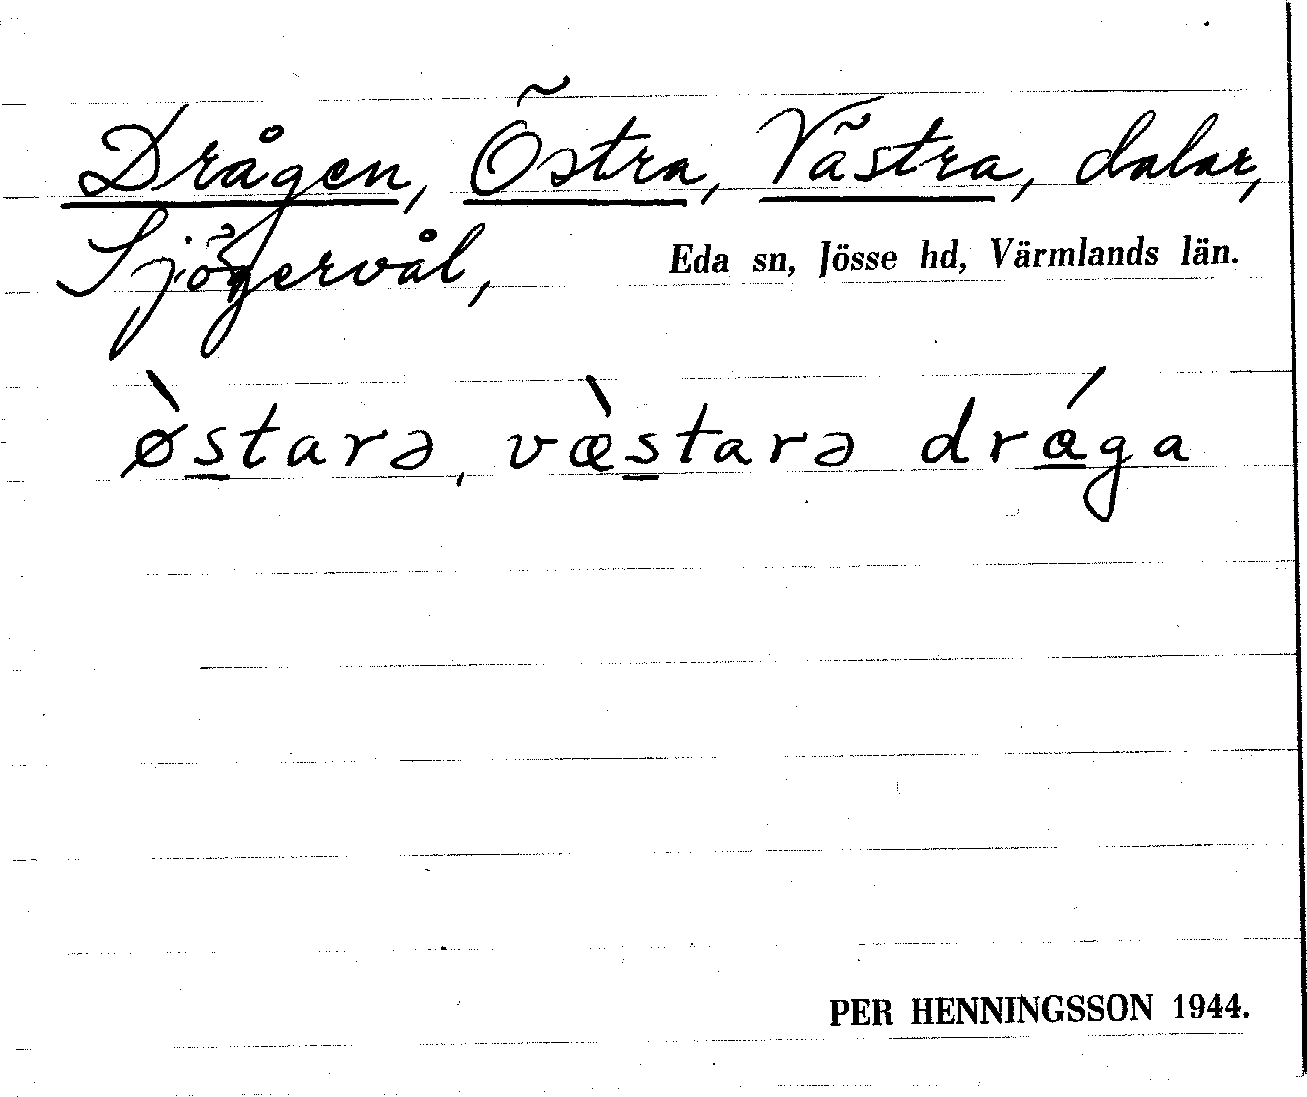 Drågen, Östra, Västra, dalar,
Sjögervål, Eda sn, Jösse hd, Värmlands län.
ø̀starə, væ̀starə drága
PER HENNINGSSON 1944.